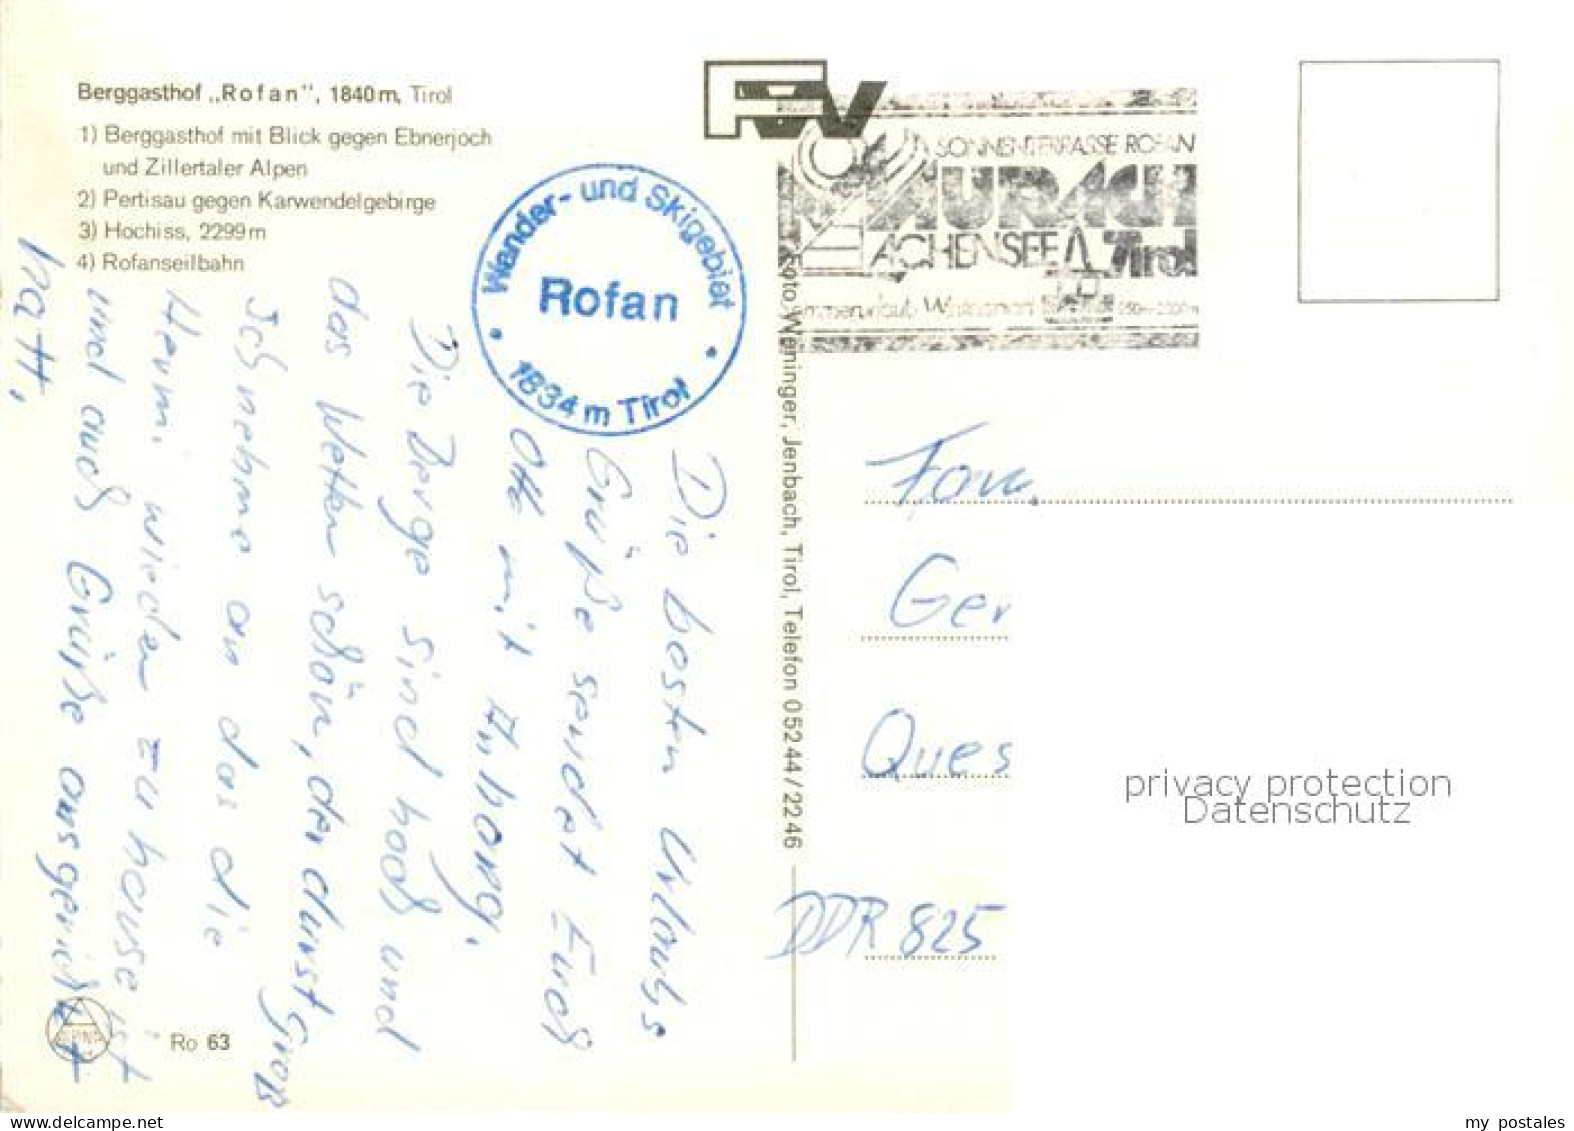 Berggasthof „Rofan", 1840m, Tirol
1) Berggasthof mit Blick gegen Ebnerjoch
und Zillertaler Alpen
2) Pertisau gegen Karwendelgebirge
3) Hochiss, 2299m
4) Rofanseilbahn
Wander- und Skigebiet
Rofan
1834 m Tirol
Die besten Urlaubs
Grüße sendet Euch
Ott mit Anhang.
Die Berge sind hoch und
das Wetter schön, der durst groß
Ich nehme an das die
Hermi wieder zu hause ist
und auch Grüße ausgerichtet
hatt.
Ro 63
Foto Weninger, Jenbach, Tirol, Telefon 05244/2246
FW
SONNENTERRASSE ROFAN
MAURACH
ACHENSEE Tirol
Fam.
Ger
Ques
DDR 825
privacy protection
Datenschutz
my postales